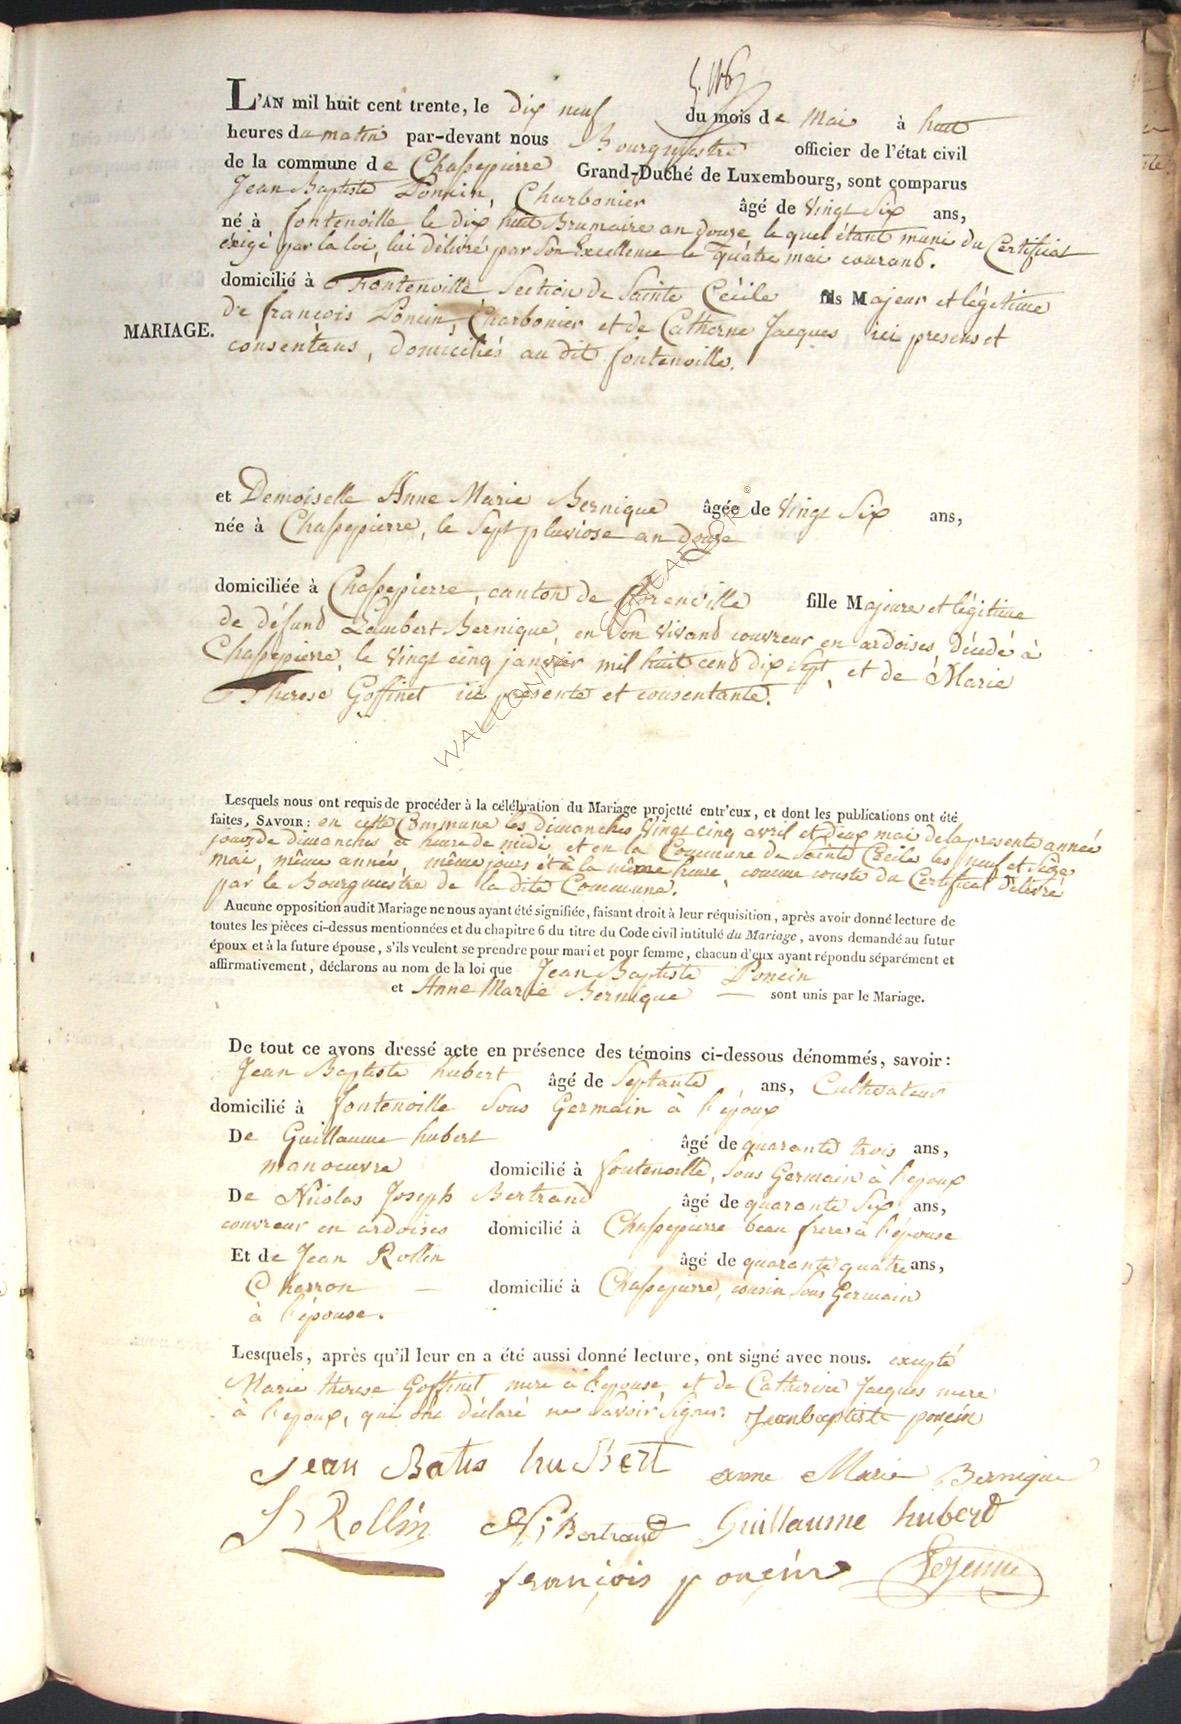 L'AN mil huit cent trente, le dix neuf du mois de Mai à huit
heures du matin par-devant nous Bourgmestre officier de l'état civil
de la commune de Chassepierre Grand-Duché de Luxembourg, sont comparus
Jean Baptiste Poncin, Charbonier âgé de Vingt Six ans,
né à fontenoille le dix huit Brumaire an douze lequel étant muni du Certificat
exigé par la loi, lui délivré par Son Excellence le quatre mai courand.
domicilié à Fontenoille Section de Sainte Cécile fils Majeur et légitime
MARIAGE.
de françois Poncin, Charbonier et de Catherne Jacques ici presens et
consentans, domiciliés au dit fontenoille.
et Demoiselle Anne Marie Bernique âgée de Vingt Six ans,
née à Chassepierre, le Sept pluviose an douze
domiciliée à Chassepierre, canton de florenville fille Majeure et légitime
de défund Lambert Bernique, en Son Vivand couvreur en ardoises, décédé à
Chassepierre, le Vingt cinq janvier mil huit cend dix sept, et de Marie
Therese Goffinet ici présente et consentante.
WALLONIE
©
Lesquels nous ont requis de procéder à la célébration du Mariage projetté entr'eux, et dont les publications ont été
faites, SAVOIR: en cette Commune les dimanches Vingt cinq avril et deux mai de la presente année
jours de dimanches à heure de midi et en la Commune de Sainte Cécile les neuf et Seize
mai, même année, même jours et à la même heure, comme conste du Certificat délivré
par le Bourgmestre de la dite Commune.
Aucune opposition audit Mariage ne nous ayant été signifiée, faisant droit à leur réquisition, après avoir donné lecture de
toutes les pièces ci-dessus mentionnées et du chapitre 6 du titre du Code civil intitulé du Mariage, avons demandé au futur
époux et à la future épouse, s'ils veulent se prendre pour mari et pour femme, chacun d'eux ayant répondu séparément et
affirmativement, déclarons au nom de la loi que Jean Baptiste Poncin
et Anne Marie Bernique — sont unis par le Mariage.
De tout ce avons dressé acte en présence des témoins ci-dessous dénommés, savoir:
Jean Baptiste hubert âgé de Septante, ans, Cultivateur
domicilié à fontenoille Sous Germain à l'époux
De Guillaume hubert âgé de quarante trois ans,
manoeuvre domicilié à fontenoille, Sous Germain à l'epoux
De Nicolas Joseph Bertrand âgé de quarante Six ans,
couvreur en ardoises domicilié à Chassepierre beau frere à l'épouse
Et de Jean Rollin âgé de quarante quatre ans,
Charron — domicilié à Chassepierre, cousin Sous Germain
à l'épouse.
Lesquels, après qu'il leur en a été aussi donné lecture, ont signé avec nous. excepté
Marie therese Goffinet mere à l'epouse, et de Catherine Jacques mere
à l'epoux, qui ont déclaré ne Savoir Signer. Jeanbaptiste poncin
Jean Batis huBert anne Marie Bernique
J Rollin NJ Bertrand Guillaume hubert
françois poncin Lejeune